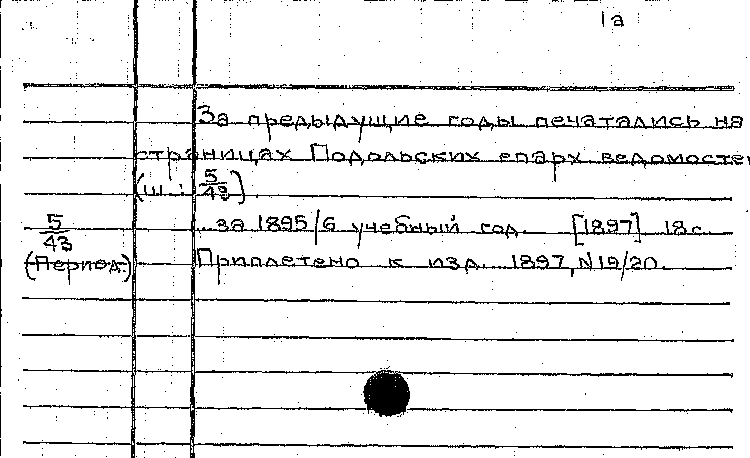 1а
За предыдущие годы печатались на
страницах Подольских епарх. ведомостей
(ш.: 5/43).
5/43 ... за 1895/6 учебный год. [1897] 18 с.
(Период.) Приплетено к изд. 1897, N 19/20.